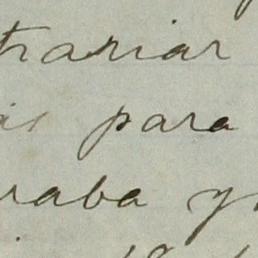 trariar
is para
raba y